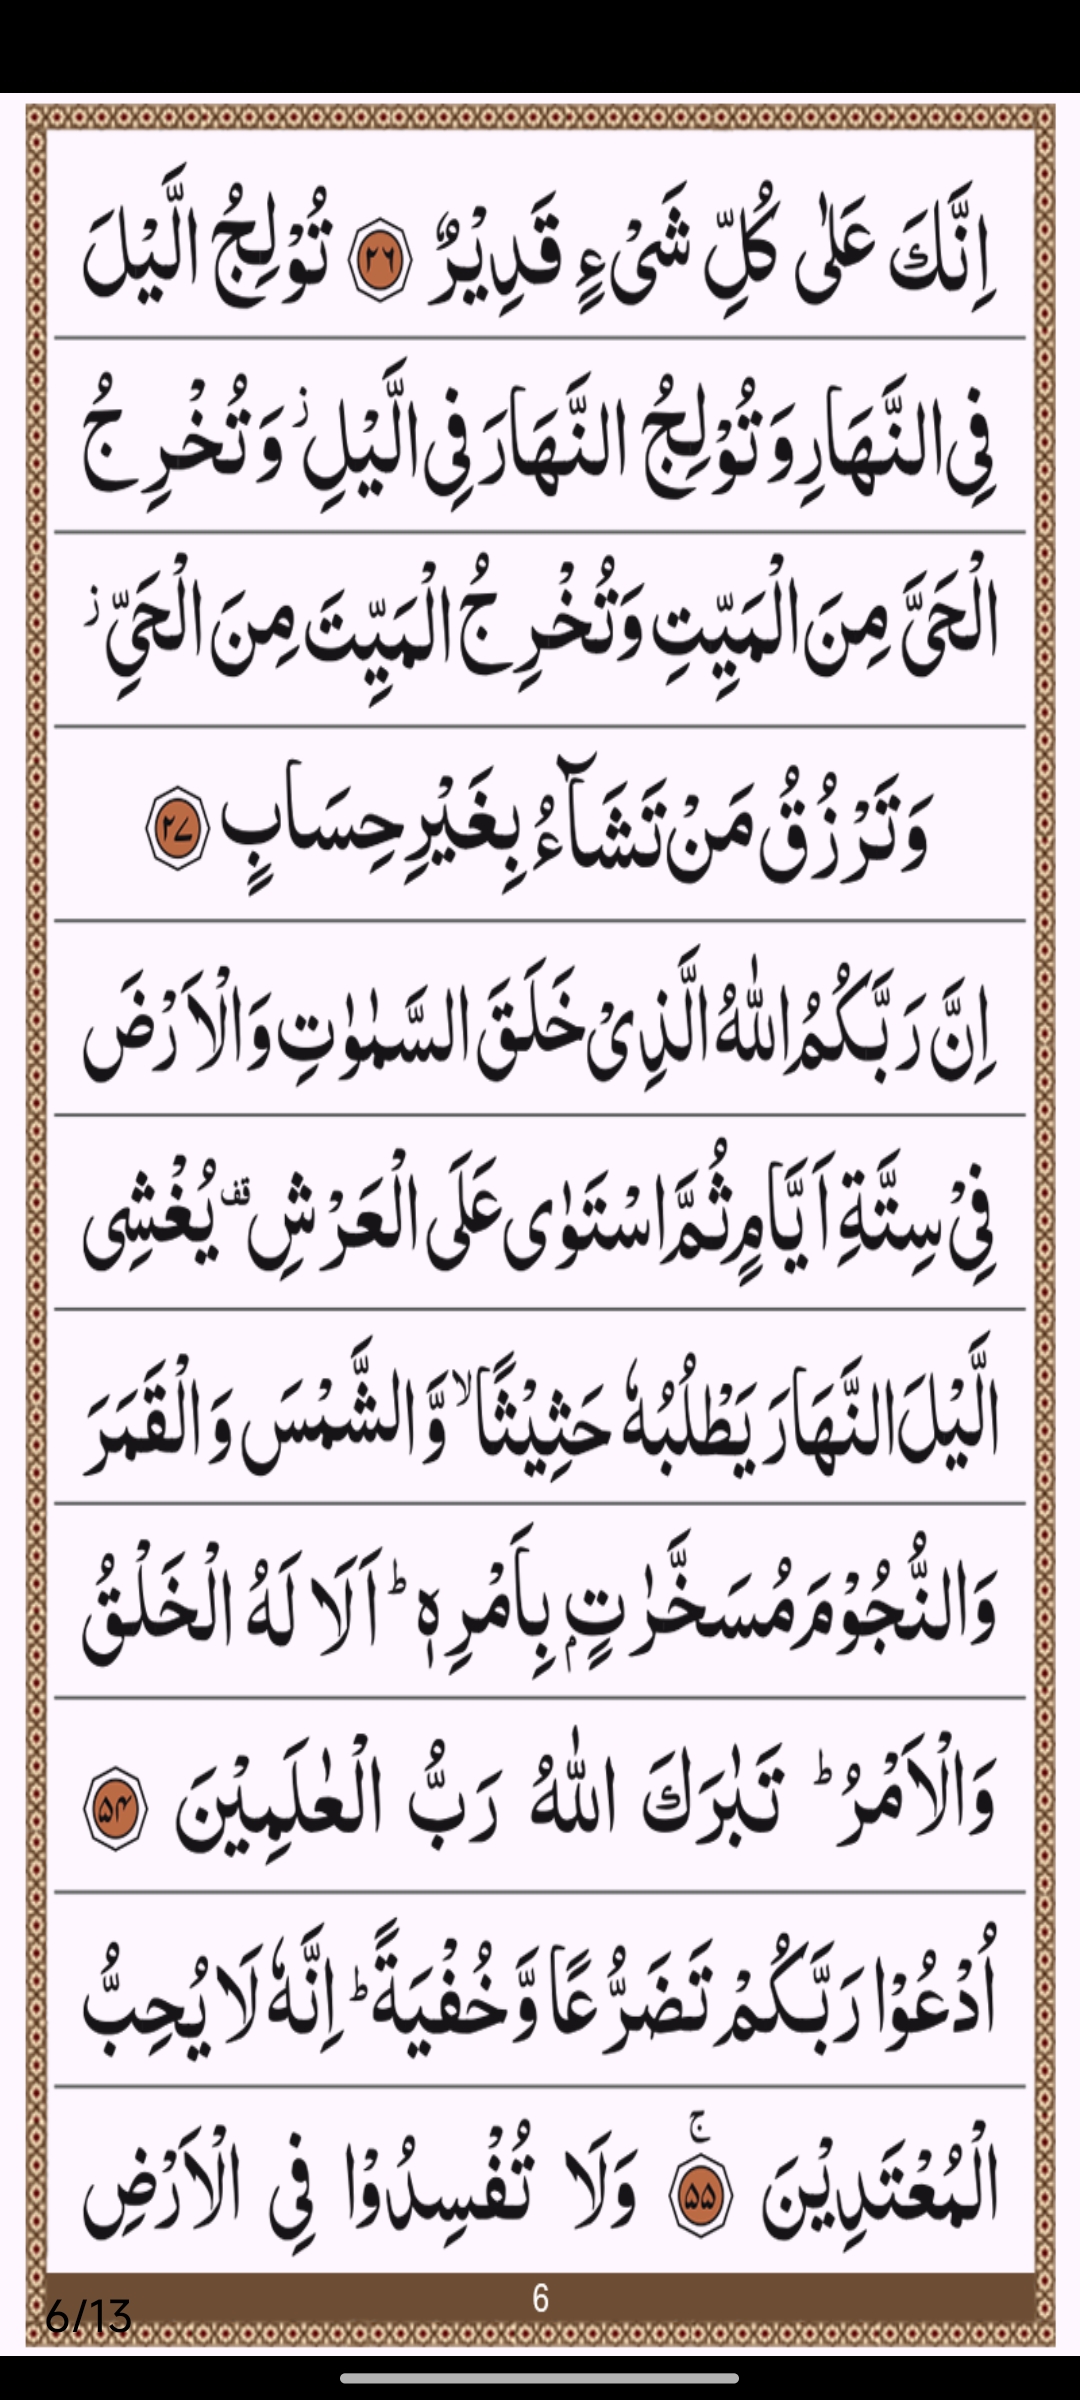 اِنَّكَ عَلٰى كُلِّ شَىْءٍ قَدِيْرٌ ۟ ۲۶ تُوْلِجُ الَّيْلَ
فِى النَّهَارِ وَتُوْلِجُ النَّهَارَ فِى الَّيْلِ ز وَتُخْرِجُ
الْحَىَّ مِنَ الْمَيِّتِ وَتُخْرِجُ الْمَيِّتَ مِنَ الْحَىِّ ز
وَتَرْزُقُ مَنْ تَشَآءُ بِغَيْرِ حِسَابٍ ۲۷
اِنَّ رَبَّكُمُ اللّٰهُ الَّذِىْ خَلَقَ السَّمٰوٰتِ وَالْاَرْضَ
فِىْ سِتَّةِ اَيَّامٍ ثُمَّ اسْتَوٰى عَلَى الْعَرْشِ قف يُغْشِى
الَّيْلَ النَّهَارَ يَطْلُبُهٗ حَثِيْثًا ۙ وَّالشَّمْسَ وَالْقَمَرَ
وَالنُّجُوْمَ مُسَخَّرٰتٍۭ بِاَمْرِهٖ ؕ اَلَا لَهُ الْخَلْقُ
وَالْاَمْرُ ؕ تَبٰرَكَ اللّٰهُ رَبُّ الْعٰلَمِيْنَ ۵۴
اُدْعُوْا رَبَّكُمْ تَضَرُّعًا وَّخُفْيَةً ؕ اِنَّهٗ لَا يُحِبُّ
الْمُعْتَدِيْنَ ۚ ۵۵ وَلَا تُفْسِدُوْا فِى الْاَرْضِ
6
6/13